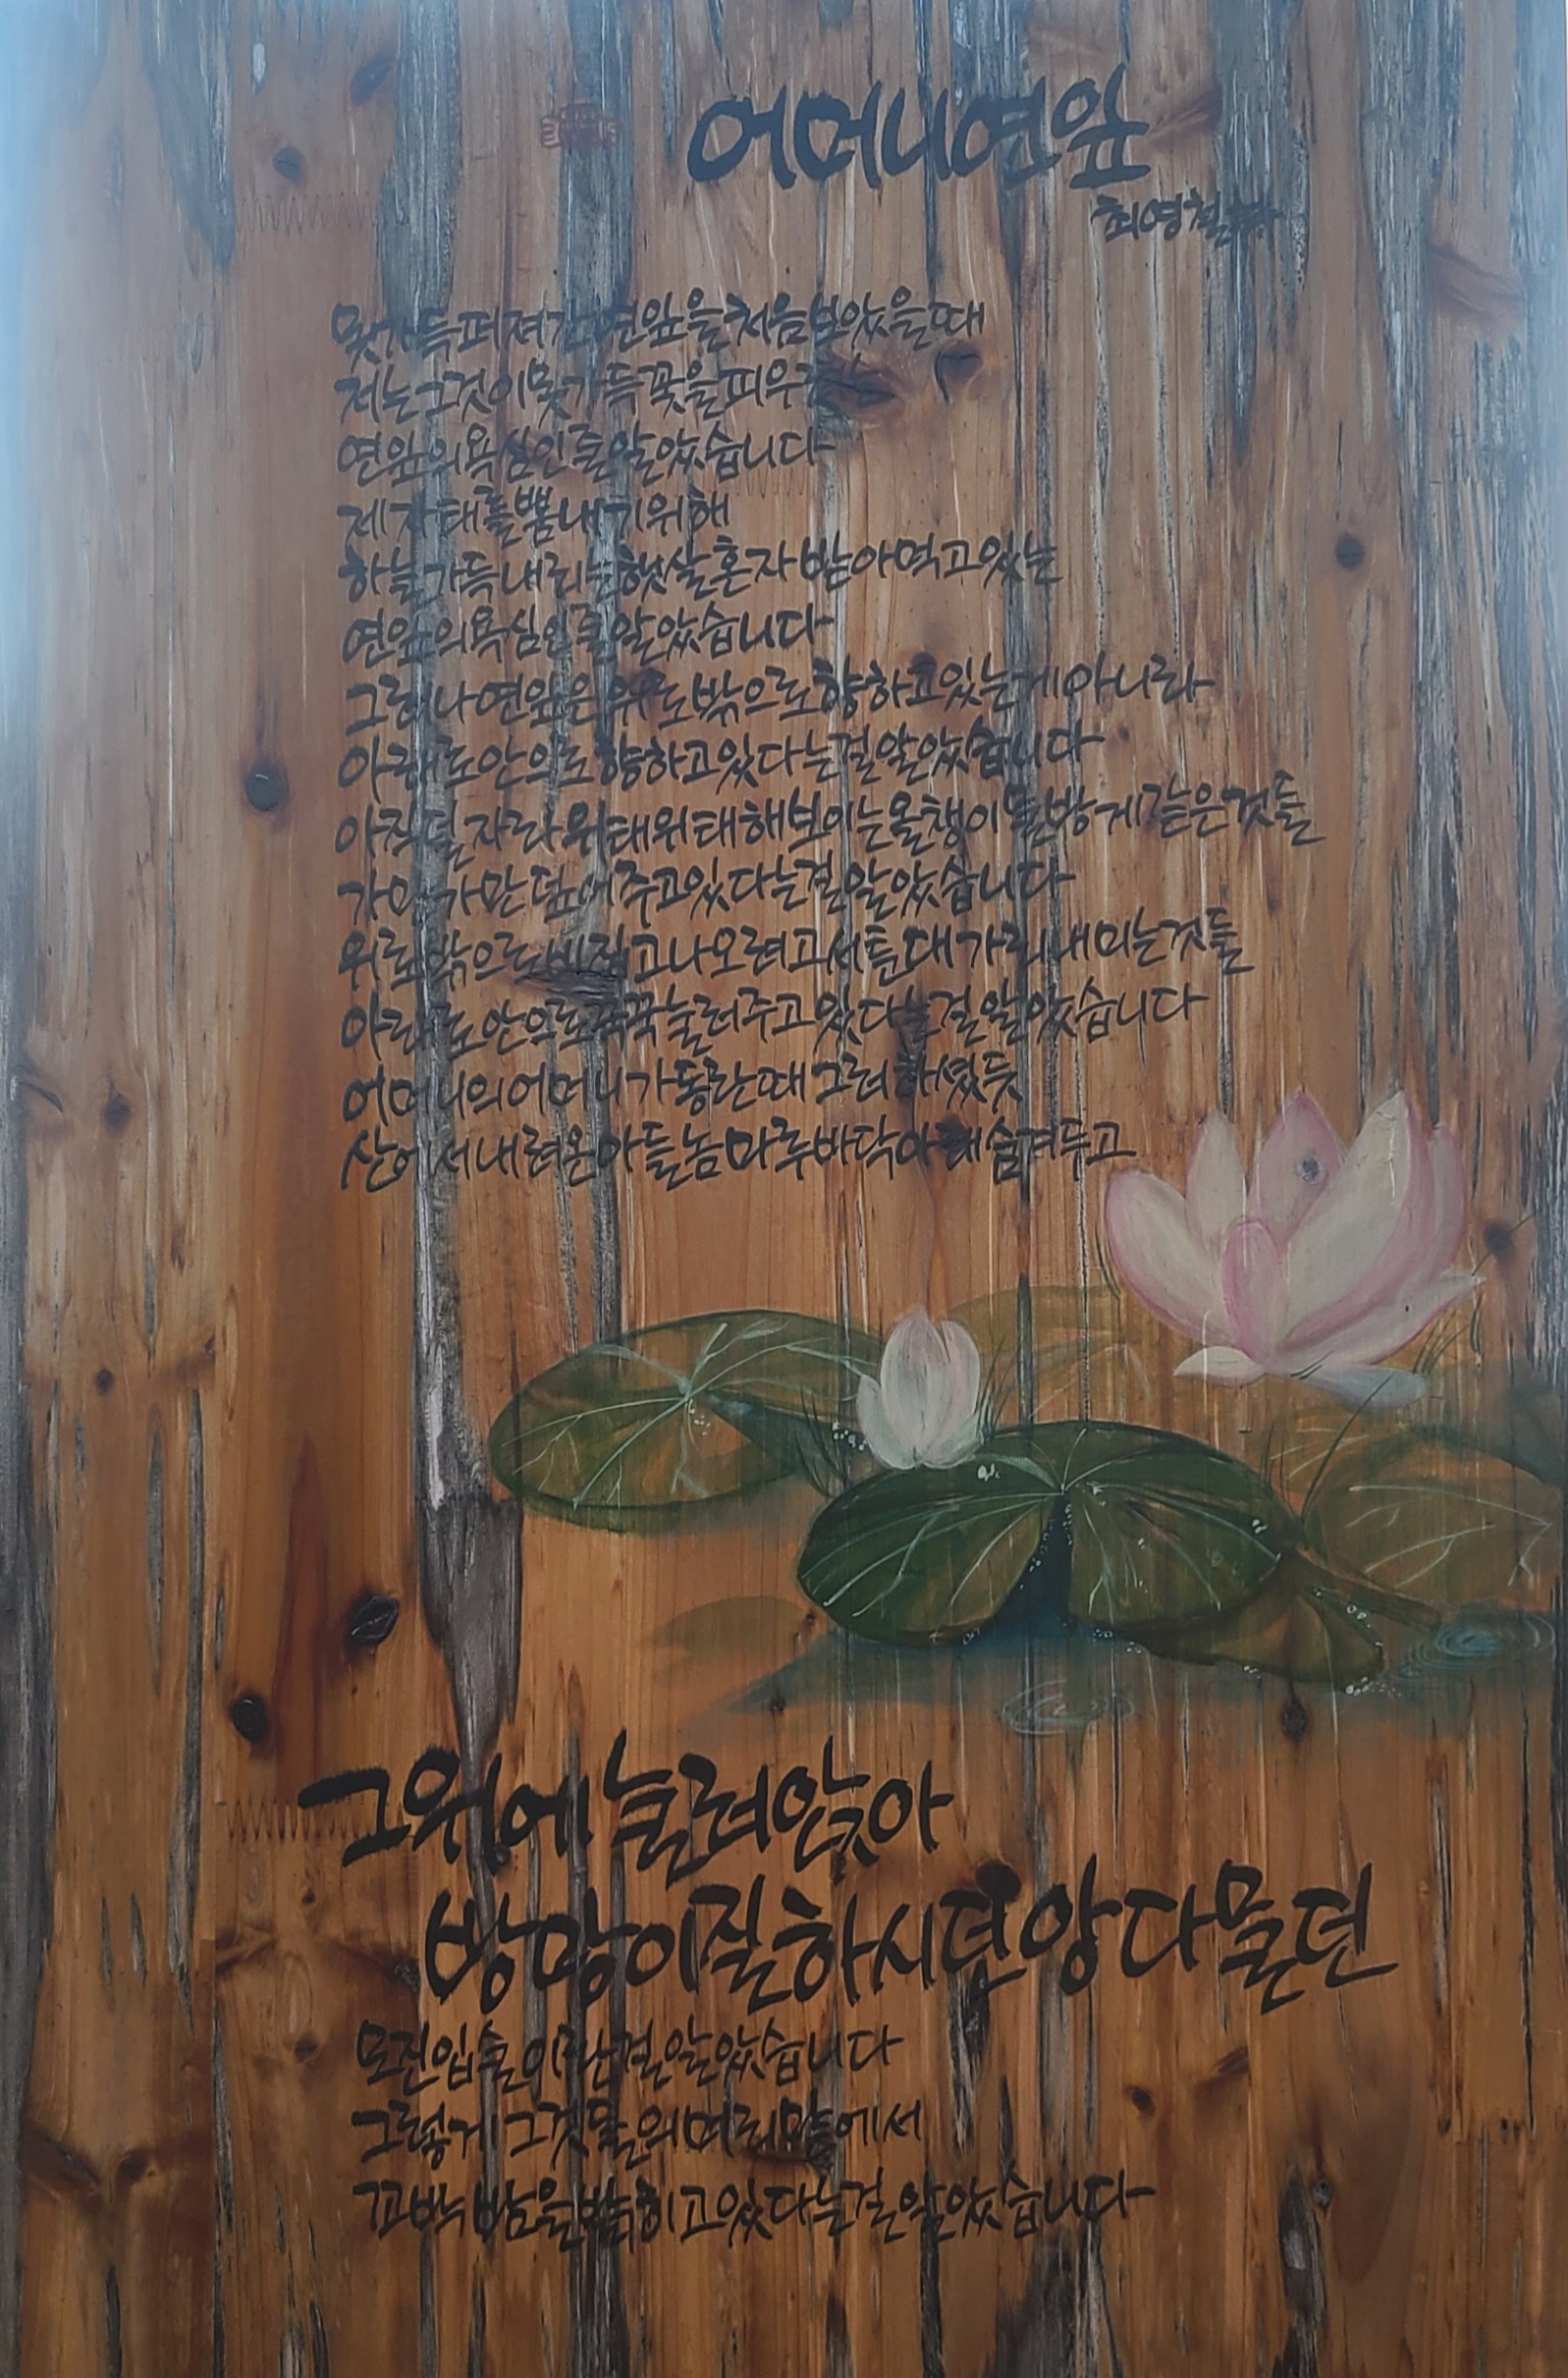 어머니 연잎
최영철
못 가득 퍼져 간 연잎을 처음 보았을 때
저는 그것이 못 가득 꽃을 피우려는
연잎의 욕심인 줄 알았습니다
제 자태를 뽐내기 위해
하늘 가득 내리는 햇살 혼자 받아 먹고 있는
연잎의 욕심인 줄 알았습니다
그러나 연잎은 위로 밖으로 향하고 있는 게 아니라
아래로 안으로 향하고 있다는 걸 알았습니다
아직 덜 자라 위태위태해 보이는 올챙이 물방게 같은 것들
가만가만 덮어 주고 있다는 걸 알았습니다
위로 밖으로 비집고 나오려고 서툰 대가리 내미는 것들
아래로 안으로 꾹꾹 눌러 주고 있다는 걸 알았습니다
어머니의 어머니가 동란 때 그러하셨듯
산에서 내려온 아들놈 마루바닥 아래 숨겨두고
그 위에 눌러앉아
방망이질 하시던 앙다물던
모진 입술이란 걸 알았습니다
그렇게 그것들의 머리맡에서
꼬박 밤을 밝히고 있다는 걸 알았습니다